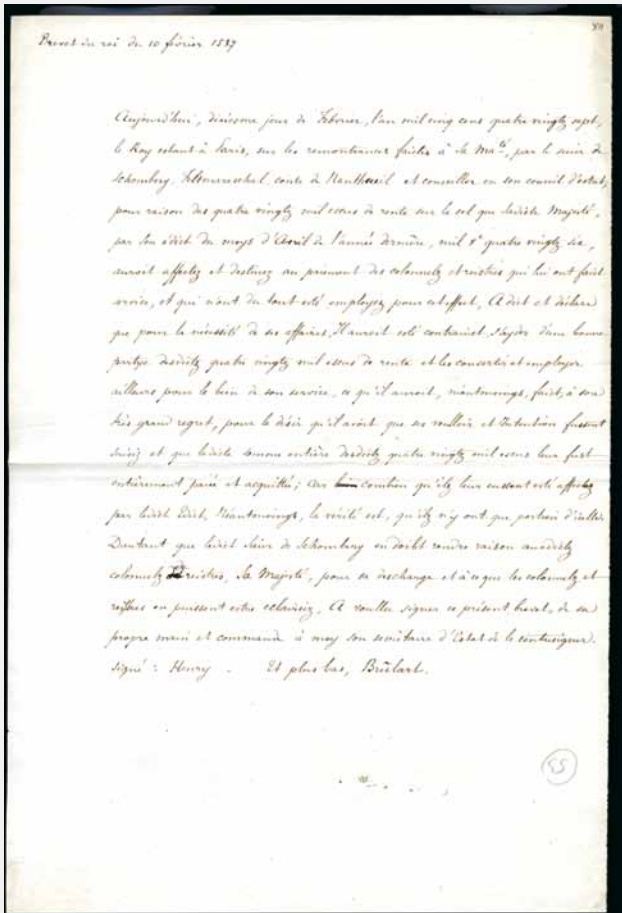 Brevet du roi du 10 février 1587
Aujourd'huy, dixiesme jour de Febvrier, l'an mil cinq cens quatre vingtz sept,
le Roy estant à Paris, sur les remontrances faictes à sa Ma.té, par le sieur de
Schomberg, comte de Nanthueil et conseiller en son conseil d'estat,
pour raison des quatre vingtz mil escus de rente sur le sel que ladicte Majesté,
par son édict du moys d'Avril de l'année dernière, mil Vc quatre vingtz six,
auroit affectez et destinez au paiement des colonnelz et reistres qui lui ont faict
service, et qui n'ont du tout esté employez pour cet effect, A dict et déclaré
que pour la nécessité de ses affaires, Il auroit esté contrainct s'ayder d'une bonne
partye desdictz quatre vingtz mil escus de rente et les convertir et employer
ailleurs pour le bien de son service, ce qu'il auroit, néantmoings, faict, à son
très grand regret, pour le désir qu'il avoit que ses voulloir et Intention fussent
suiviz et que ladicte somme entière desdictz quatre vingtz mil escus leur fust
entièrement paiée et acquittée; car combien qu'ilz leur eussent esté affectez
par ledict Edict, Néantmoings, la vérité est, qu'ilz n'y ont que portion d'icelle.
Dautant que ledict sieur de Schomberg en doibt rendre raison ausdictz
colonnelz reistres, Sa Majesté, pour sa descharge et à ce que les colonnelz et
reistres en puissent estre esclairciz, A voullu signer ce présent brevet, de sa
propre main et commandé à moy son secrétaire d'Estat de le contresigner.
signé : Henry . Et plus bas, Brulart.
55